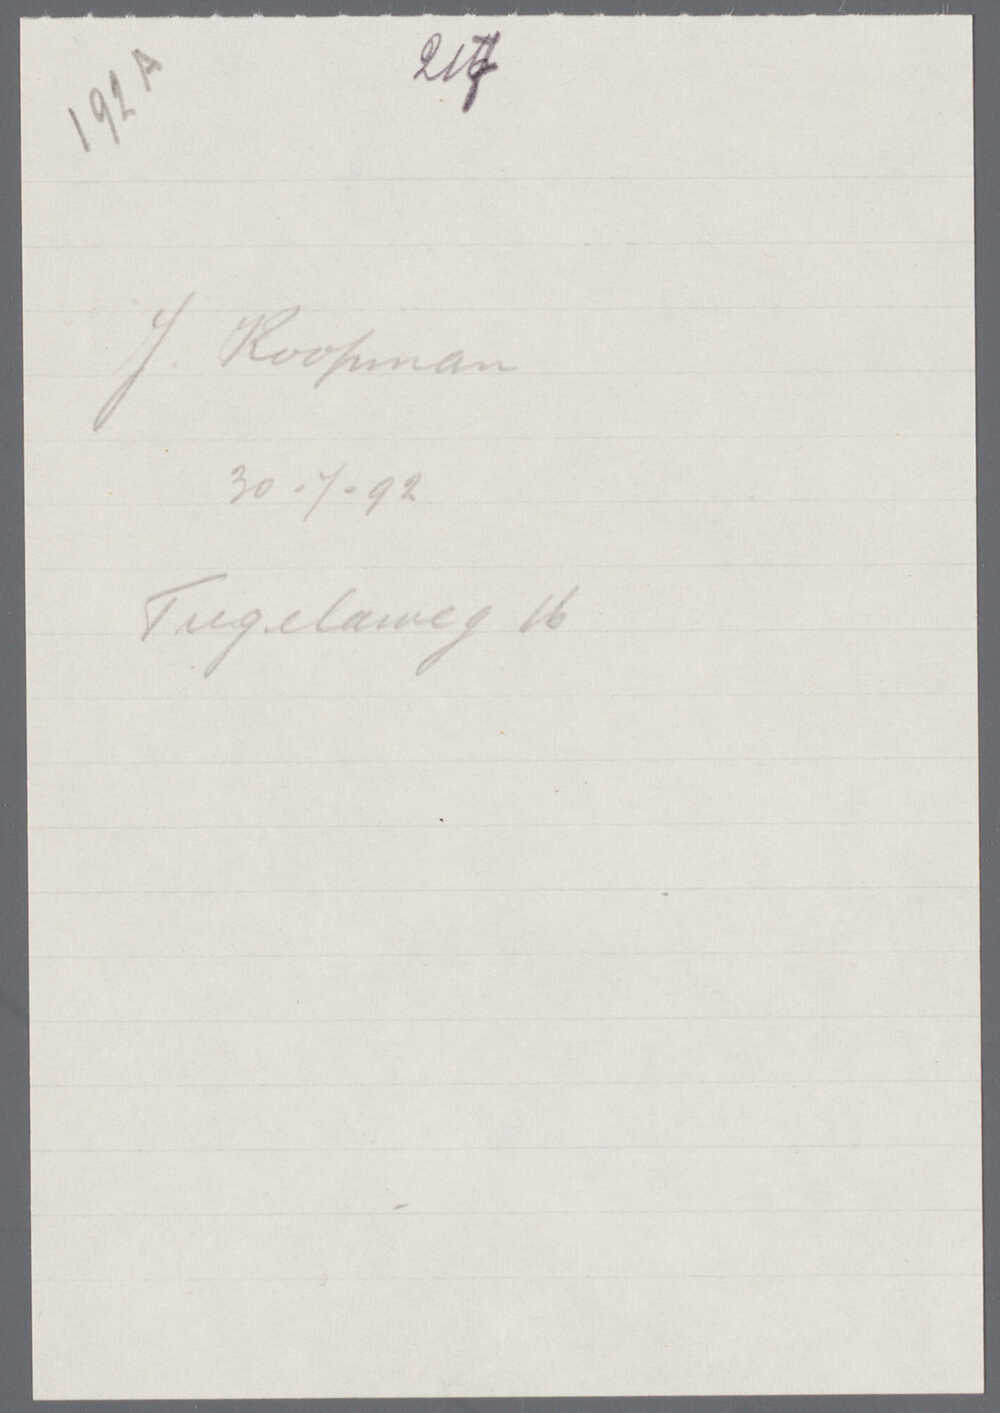 192A
217
J. Koopman
30.7.92
Tugelaweg 16